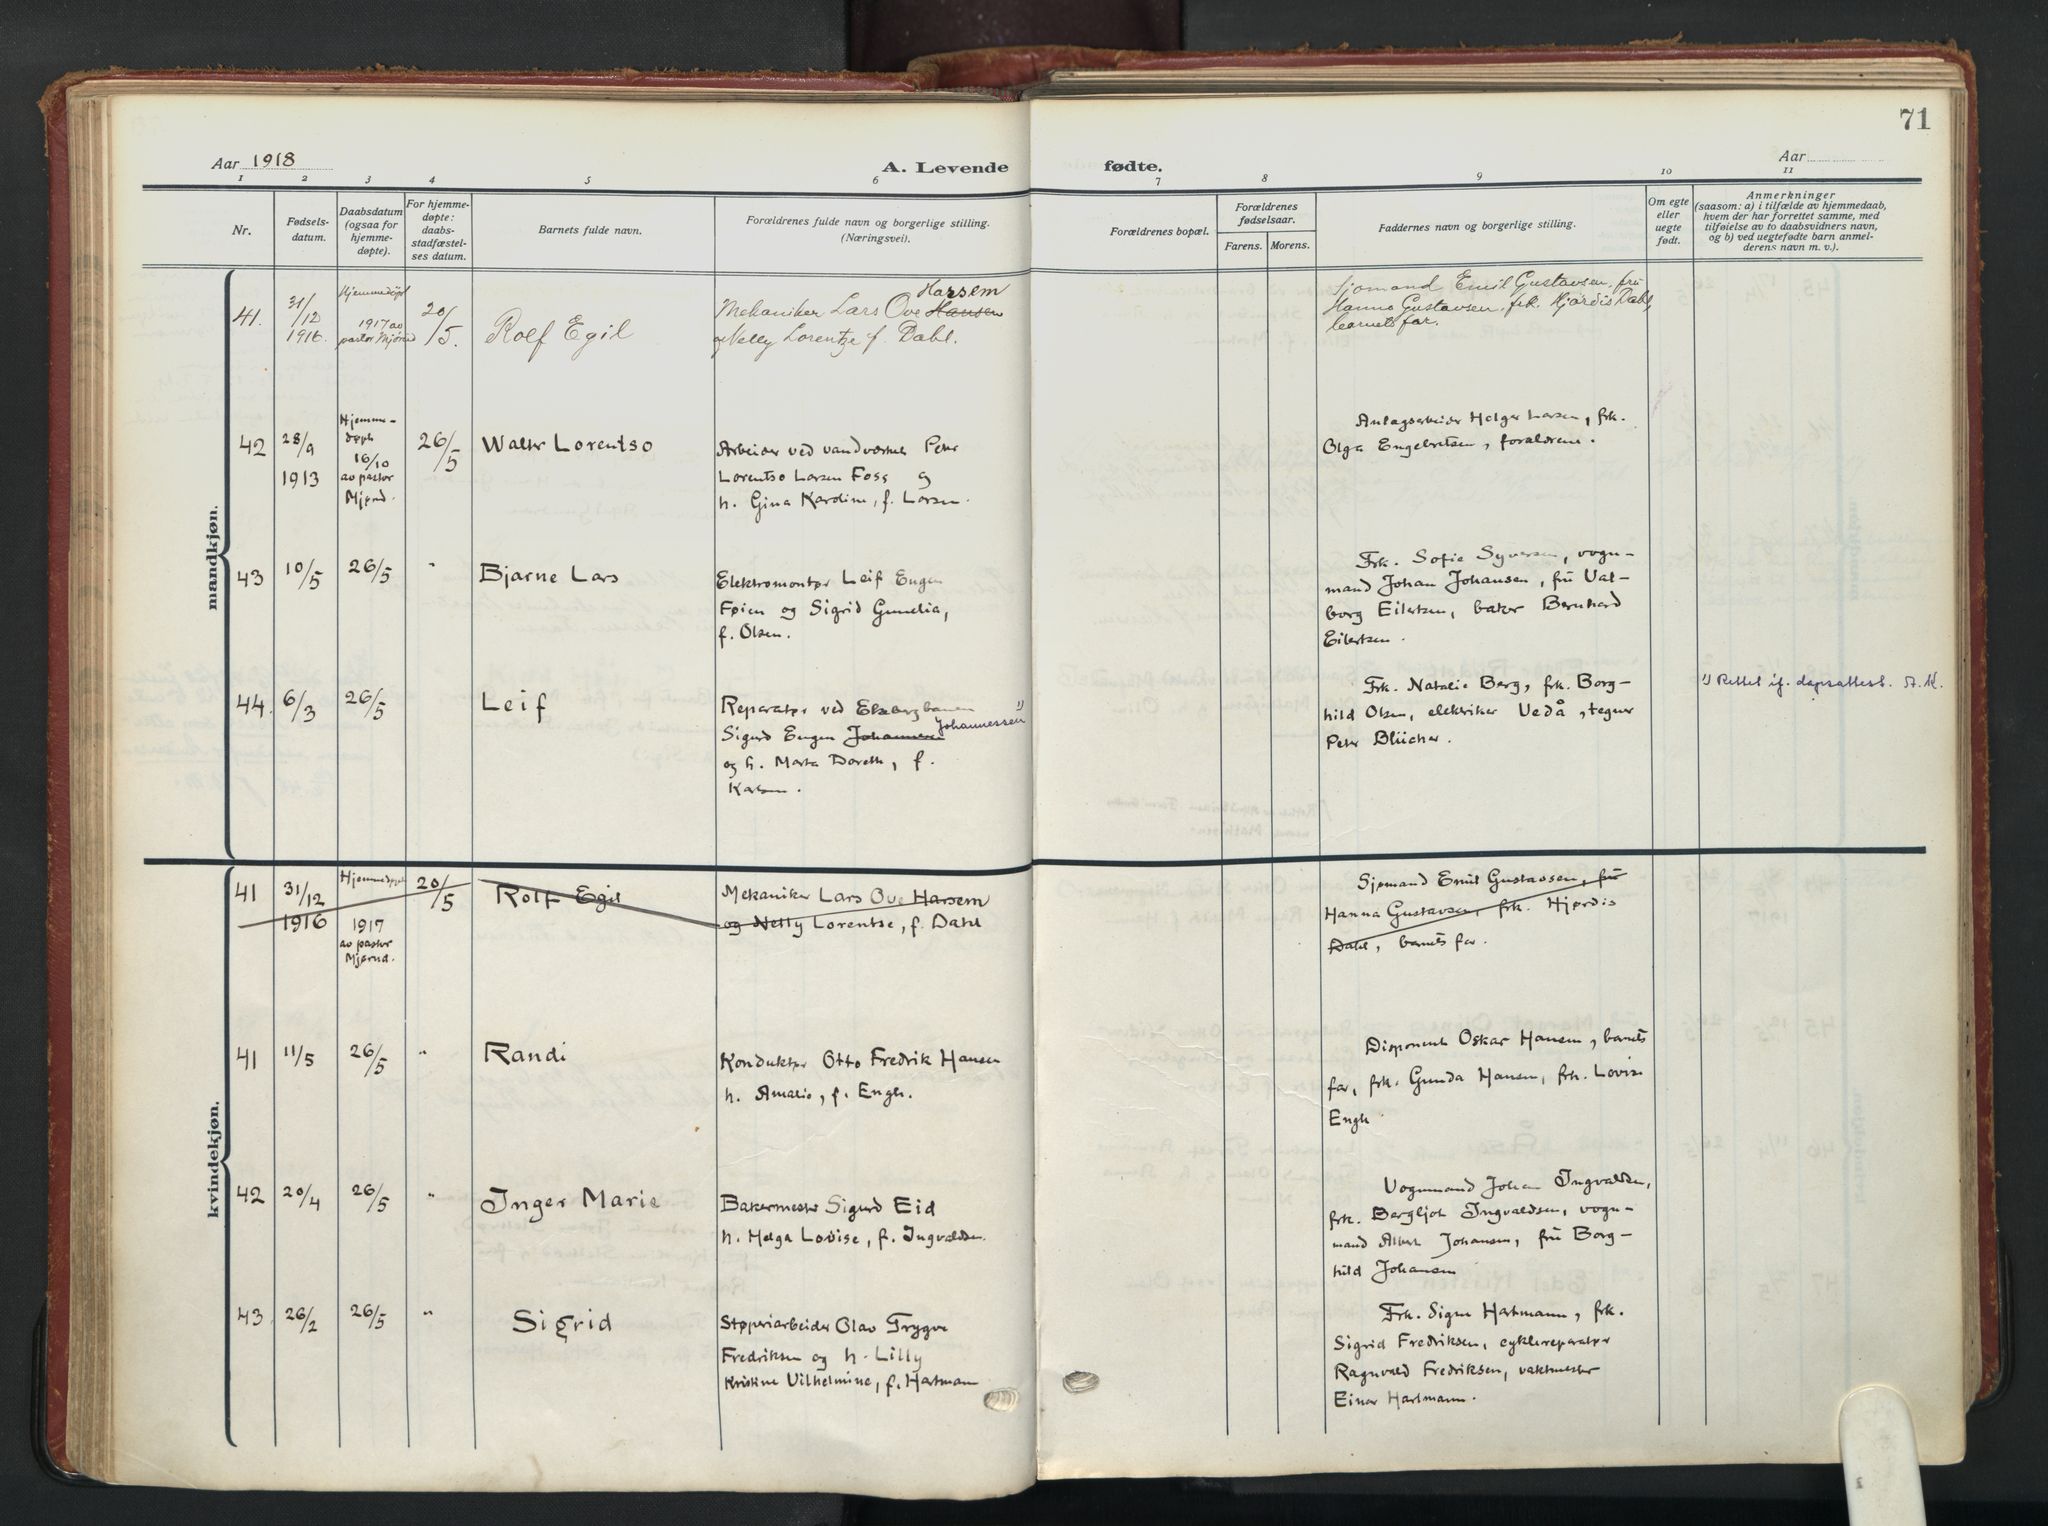 71
Aar 1918
A. Levende fødte.
Aar
1 2 3 4 5 6 7 8 9 10 11
Nr.
Fødsels-
datum.
Daabsdatum
(ogsaa for
hjemme-
døpte).
For hjemme-
døpte:
daabs-
stadfæstel-
ses datum.
Barnets fulde navn.
Forældrenes fulde navn og borgerlige stilling.
(Næringsvei).
Forældrenes bopæl.
Forældrenes
fødselsaar.
Farens. Morens.
Faddernes navn og borgerlige stilling.
Om egte
eller
uegte
født.
Anmerkninger
(saasom: a) i tilfælde av hjemmedaab,
hvem der har forrettet samme, med
tilføielse av to daabsvidners navn,
og b) ved uegtefødte barn anmel-
derens navn m. v.).
mandkjøn.
41.
31/12
1916.
Hjemmedøpt
1917 av
pastor Mjørud
20/5.
Rolf Egil
Harsem
Mekaniker Lars Ove Hansen
og Nelly Lorentze f. Dahl.
Sjømand Emil Gustavsen, fru
Hanna Gustavsen, frk. Hjørdis Dahl,
barnets far.
42
28/9
1913
Hjemme-
døpt
16/10
av pastor
Mjørud.
26/5
Walter Lorentso
Arbeider ved vandverket Peter
Lorentso Larsen Foss og
h. Gina Karoline, f. Larsen.
Anlagsarbeider Holger Larsen, frk.
Olga Engebretsen, forældrene.
43
10/5
26/5
"
Bjarne Lars
Elektromontør Leif Eugen
Føien og Sigrid Gunelia,
f. Olsen.
Frk. Sofie Syversen, vogn-
mand Johan Johansen, frü Val-
borg Eilertsen, baker Bernhard
Eilertsen.
44.
6/3
26/5
Leif
Reparatør ved Ekebergbanen
Johannessen 1)
Sigurd Eugen Johannesen
og h. Marta Doreth, f.
Karlsen.
Frk. Natalie Berg, frk. Borg-
hild Olsen, elektriker Vedå, tegner
Peter Blücher.
1) Rettet if. dåpsattest. A. K.
kvindekjøn.
41
31/12
1916
Hjemmedøpt
1917
av pastor
Mjørud.
20/5
Rolf Egil
Mekaniker Lars Ove Harsem
og Nelly Lorentse, f. Dahl
Sjømand Emil Gustavsen, frü
Hanna Gustavsen, frk. Hjørdis
Dahl, barnets far.
41
11/5
26/5
"
Randi
Konduktør Otto Fredrik Hansen
h. Amalie, f. Engh.
Disponent Oskar Hansen, barnets
far, frk. Gunda Hansen, frk. Lovise
Engh
42
20/4
26/5
"
Inger Marie
Bakermester Sigurd Eid
h. Helga Lovise, f. Ingvaldsen.
Vognmand Johan Ingvaldsen,
frk. Bergljot Ingvaldsen, vogn-
mand Albert Johansen, frü Borg-
hild Johansen
43
26/2
26/5
"
Sigrid
Støperiarbeider Olav Trygve
Fredriksen og h. Lilly
Kristine Vilhelmine, f. Hartmann
Frk. Signe Hartmann, frk.
Sigrid Fredriksen, cyklereparatør
Ragnvald Fredriksen, vaktmester
Einar Hartmann.